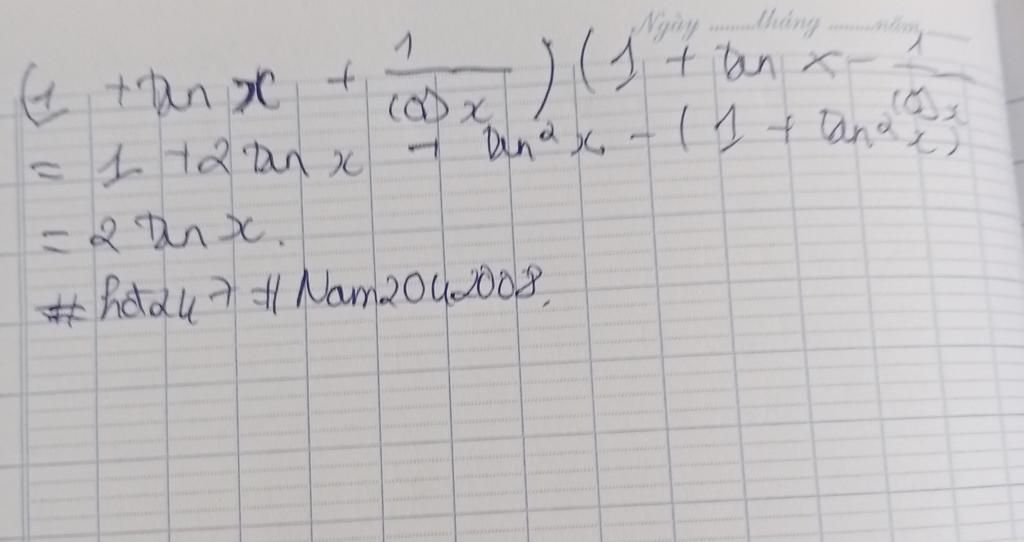 Ngày ........tháng ........năm
(1 + tan x + 1/cos x)(1 + tan x - 1/cos x)
= 1 + 2 tan x + tan² x - (1 + tan² x)
= 2 tan x.
# hdt247 # Nam20042008.